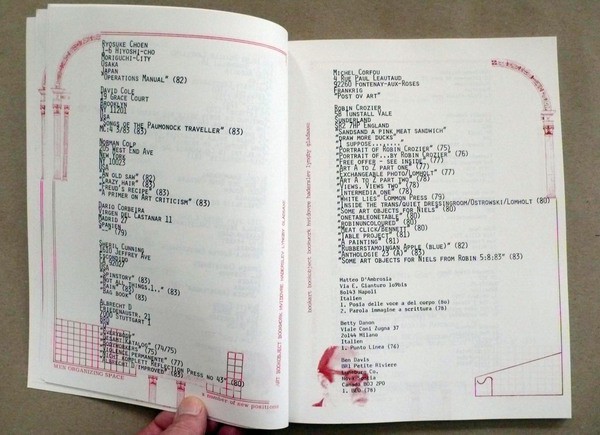 RYOSUKE COHEN
1-6 HIYOSHI-CHO
MORIGUCHI-CITY
OSAKA
JAPAN
"OPERATIONS MANUAL" (82)
DAVID COLE
19 GRACE COURT
BROOKLYN
NY 11201
USA
OF THE PAUMONOCK TRAVELLER" (83)
3/83 (83)
NORMAN COLP
WEST END AVE
NEW YORK
10025
USA
OLD SAW" (82)
"CRAZY HAIR" (82)
"FREUD'S RECIPE" (83)
"A PRIMER ON ART CRITICISM" (83)
DARIO CORBEIRA
VIRGEN DEL CASTANAR 11
MADRID
SPANIEN
(79)
SHERIL CUNNING
AVE
ESCONDIDO
CA 92027
USA
"SPINSTORY" (83)
ALL THINGS.." (83)
(83)
"BAG BOOK" (83)
ALBRECHT D
STUTTGART 1
KATALOG" (74/75)
(75)
PERMANENTE" (77)
KOMPLETT REFLECTION PRESS NO 43" (80)
D. IMPROVED" (83)
MEN ORGANIZING SPACE
a number of new positions
MICHEL CORFOU
4 RUE PAUL LEAUTAUD
92260 FONTENAY-AUX-ROSES
FRANKRIG
"POST OV ART"
ROBIN CROZIER
5B TUNSTALL VALE
SUNDERLAND
SR2 7HP ENGLAND
"SANDSAND A PINK MEAT SANDWICH"
"DRAW MORE DUCKS"
"I SUPPOSE........"
"PORTRAIT OF ROBIN CROZIER" (75)
"PORTRAIT OF...BY ROBIN CROZIER" (76)
"FREE OFFER - SEE INSIDE" (77)
"ART A TO Z PART ONE" (77)
"EXCHANGEABLE PHOTO/LOMHOLT" (77)
"ART A TO Z PART TWO" (78)
"VIEWS, VIEWS TWO" (78)
"INTERMEDIA ONE" (78)
"WHITE LIES" COMMON PRESS (79)
"INSIDE THE TRANS/QUIET DRESSINGROOM/OSTROWSKI/LOMHOLT (80)
"SOME ART OBJECTS FOR NIELS" (80)
"ONETABLEONETABLE" (80)
"ROBINUNCOLOURED" (80)
"MEAT CLICK/BENNETT" (80)
"TABLE PROJECT" (81)
"A PAINTING" (81)
"RUBBERSTAMOINGAN APPLE (BLUE)" (82)
"ANTHOLOGIE 23 (A)" (83)
"SOME ART OBJECTS FOR NIELS FROM ROBIN 5:8:83" (83)
Matteo D'Ambrosia
Via E. Gianturo 109bis
80143 Napoli
Italien
1. Poaia delle voce a del corpo (80)
2. Parola immagine a scrittura (78)
Betty Danon
Viale Coni Zugna 37
20144 Milano
Italien
1. Punto Linea (76)
Ben Davis
BR1 Petite Riviere
Co.
Canada BOJ 2PO
(78)